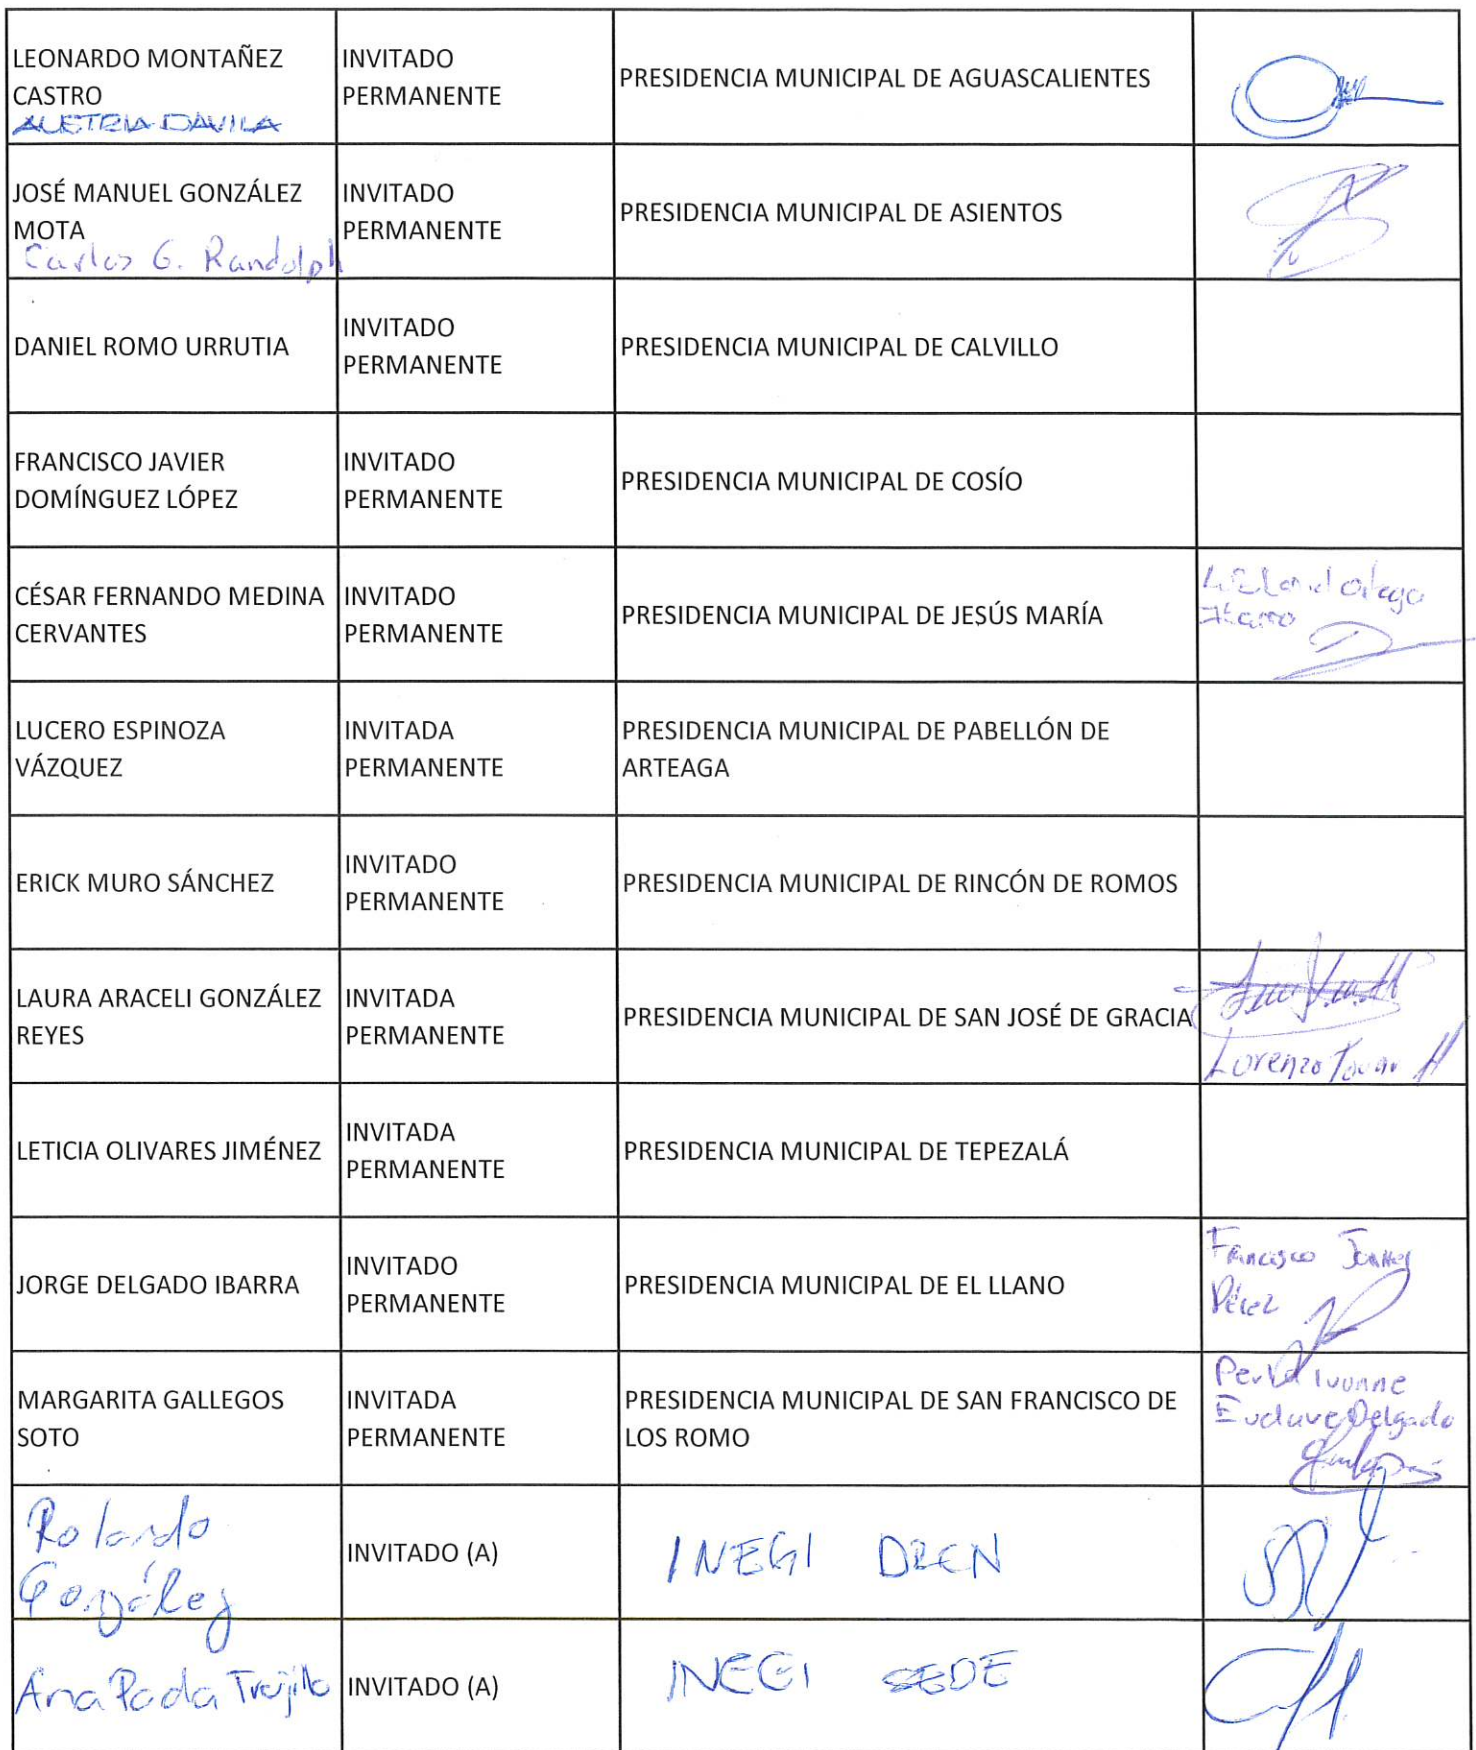 LEONARDO MONTAÑEZ
CASTRO
AUSTRIA DAVILA
INVITADO
PERMANENTE
PRESIDENCIA MUNICIPAL DE AGUASCALIENTES
JOSÉ MANUEL GONZÁLEZ
MOTA
Carlos G. Randolph
INVITADO
PERMANENTE
PRESIDENCIA MUNICIPAL DE ASIENTOS
DANIEL ROMO URRUTIA
INVITADO
PERMANENTE
PRESIDENCIA MUNICIPAL DE CALVILLO
FRANCISCO JAVIER
DOMÍNGUEZ LÓPEZ
INVITADO
PERMANENTE
PRESIDENCIA MUNICIPAL DE COSÍO
CÉSAR FERNANDO MEDINA
CERVANTES
INVITADO
PERMANENTE
PRESIDENCIA MUNICIPAL DE JESÚS MARÍA
LUCERO ESPINOZA
VÁZQUEZ
INVITADA
PERMANENTE
PRESIDENCIA MUNICIPAL DE PABELLÓN DE
ARTEAGA
ERICK MURO SÁNCHEZ
INVITADO
PERMANENTE
PRESIDENCIA MUNICIPAL DE RINCÓN DE ROMOS
LAURA ARACELI GONZÁLEZ
REYES
INVITADA
PERMANENTE
PRESIDENCIA MUNICIPAL DE SAN JOSÉ DE GRACIA
Lorenzo Tovar H
LETICIA OLIVARES JIMÉNEZ
INVITADA
PERMANENTE
PRESIDENCIA MUNICIPAL DE TEPEZALÁ
JORGE DELGADO IBARRA
INVITADO
PERMANENTE
PRESIDENCIA MUNICIPAL DE EL LLANO
Francisco
Pérez
MARGARITA GALLEGOS
SOTO
INVITADA
PERMANENTE
PRESIDENCIA MUNICIPAL DE SAN FRANCISCO DE
LOS ROMO
Perla Ivonne
Esclave Delgado
Rolando
González
INVITADO (A)
INEGI DRCN
Ana Paola Trujillo
INVITADO (A)
INEGI SEDE